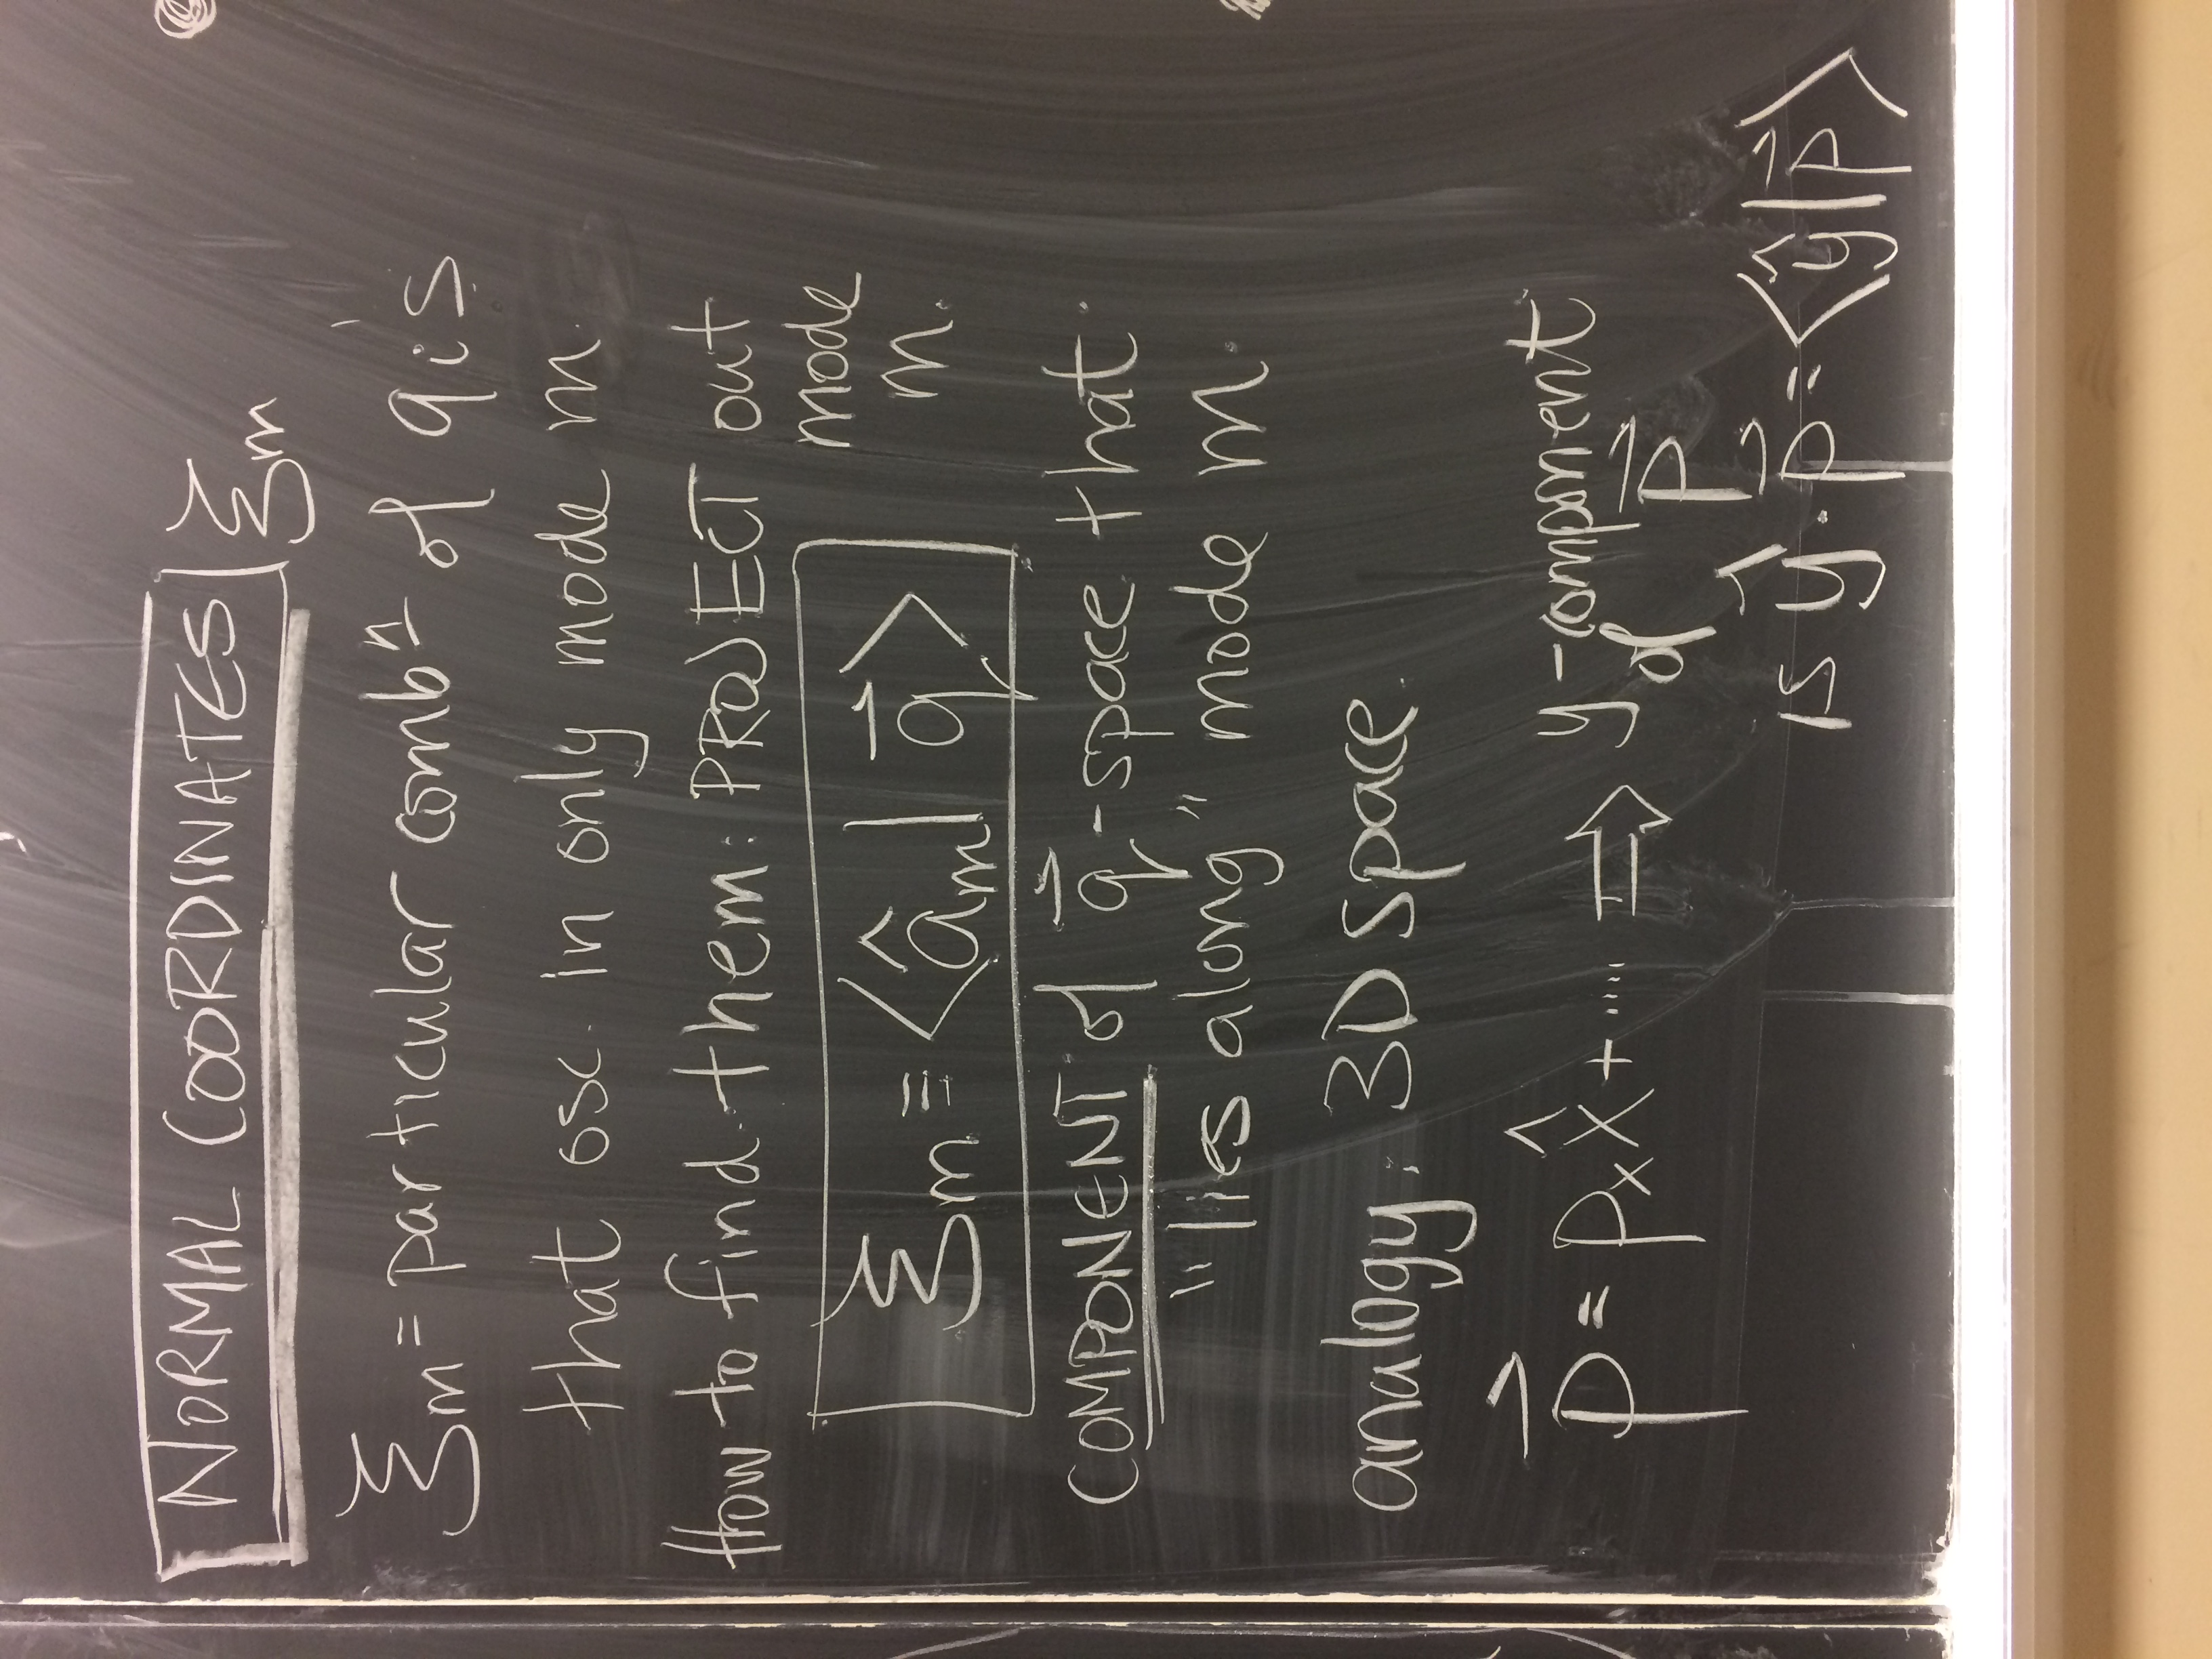 NORMAL COORDINATES ξm
ξm = particular combⁿ of qi's
that osc. in only mode m.
How to find them: PROJECT out mode m.
ξm ≡ <âm| q⃗>
COMPONENT of q⃗-space that
"lies along" mode m.
analogy: 3D space.
p⃗ = pxx̂ + ..... ⇒ y-component
of p⃗
is ŷ·p⃗ = <ŷ|p⃗>